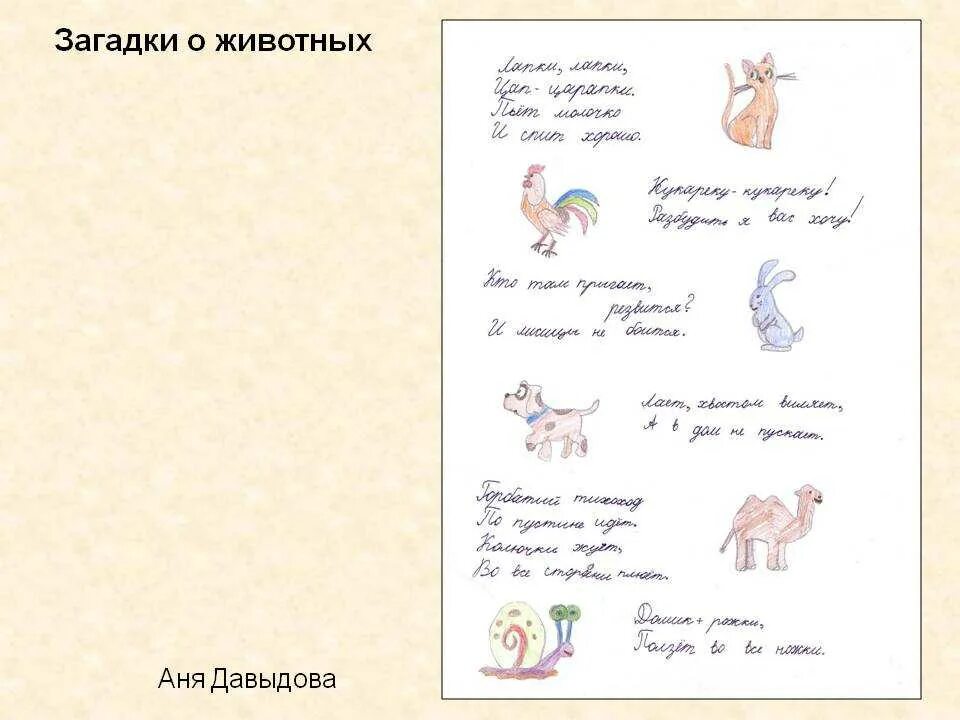 Загадки о животных
Лапки, лапки,
Цап-царапки.
Пьёт молочко
И спит хорошо.
Кукареку-кукареку!
Разбудить я вас хочу!
Кто там прыгает,
резвится?
И лисицы не боится.
Лает, хвостом виляет,
А в дом не пускает.
Горбатый тихоход
По пустыне идёт.
Колючки жуёт,
Во все стороны плюёт.
Домик + рожки,
Ползёт во все ножки.
Аня Давыдова